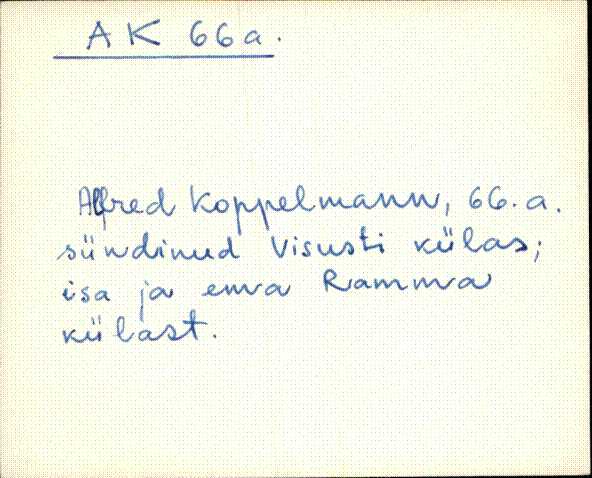 AK 66a.
Alfred Koppelmann, 66.a.
sündinud Visusti külas;
isa ja ema Ramma
külast.